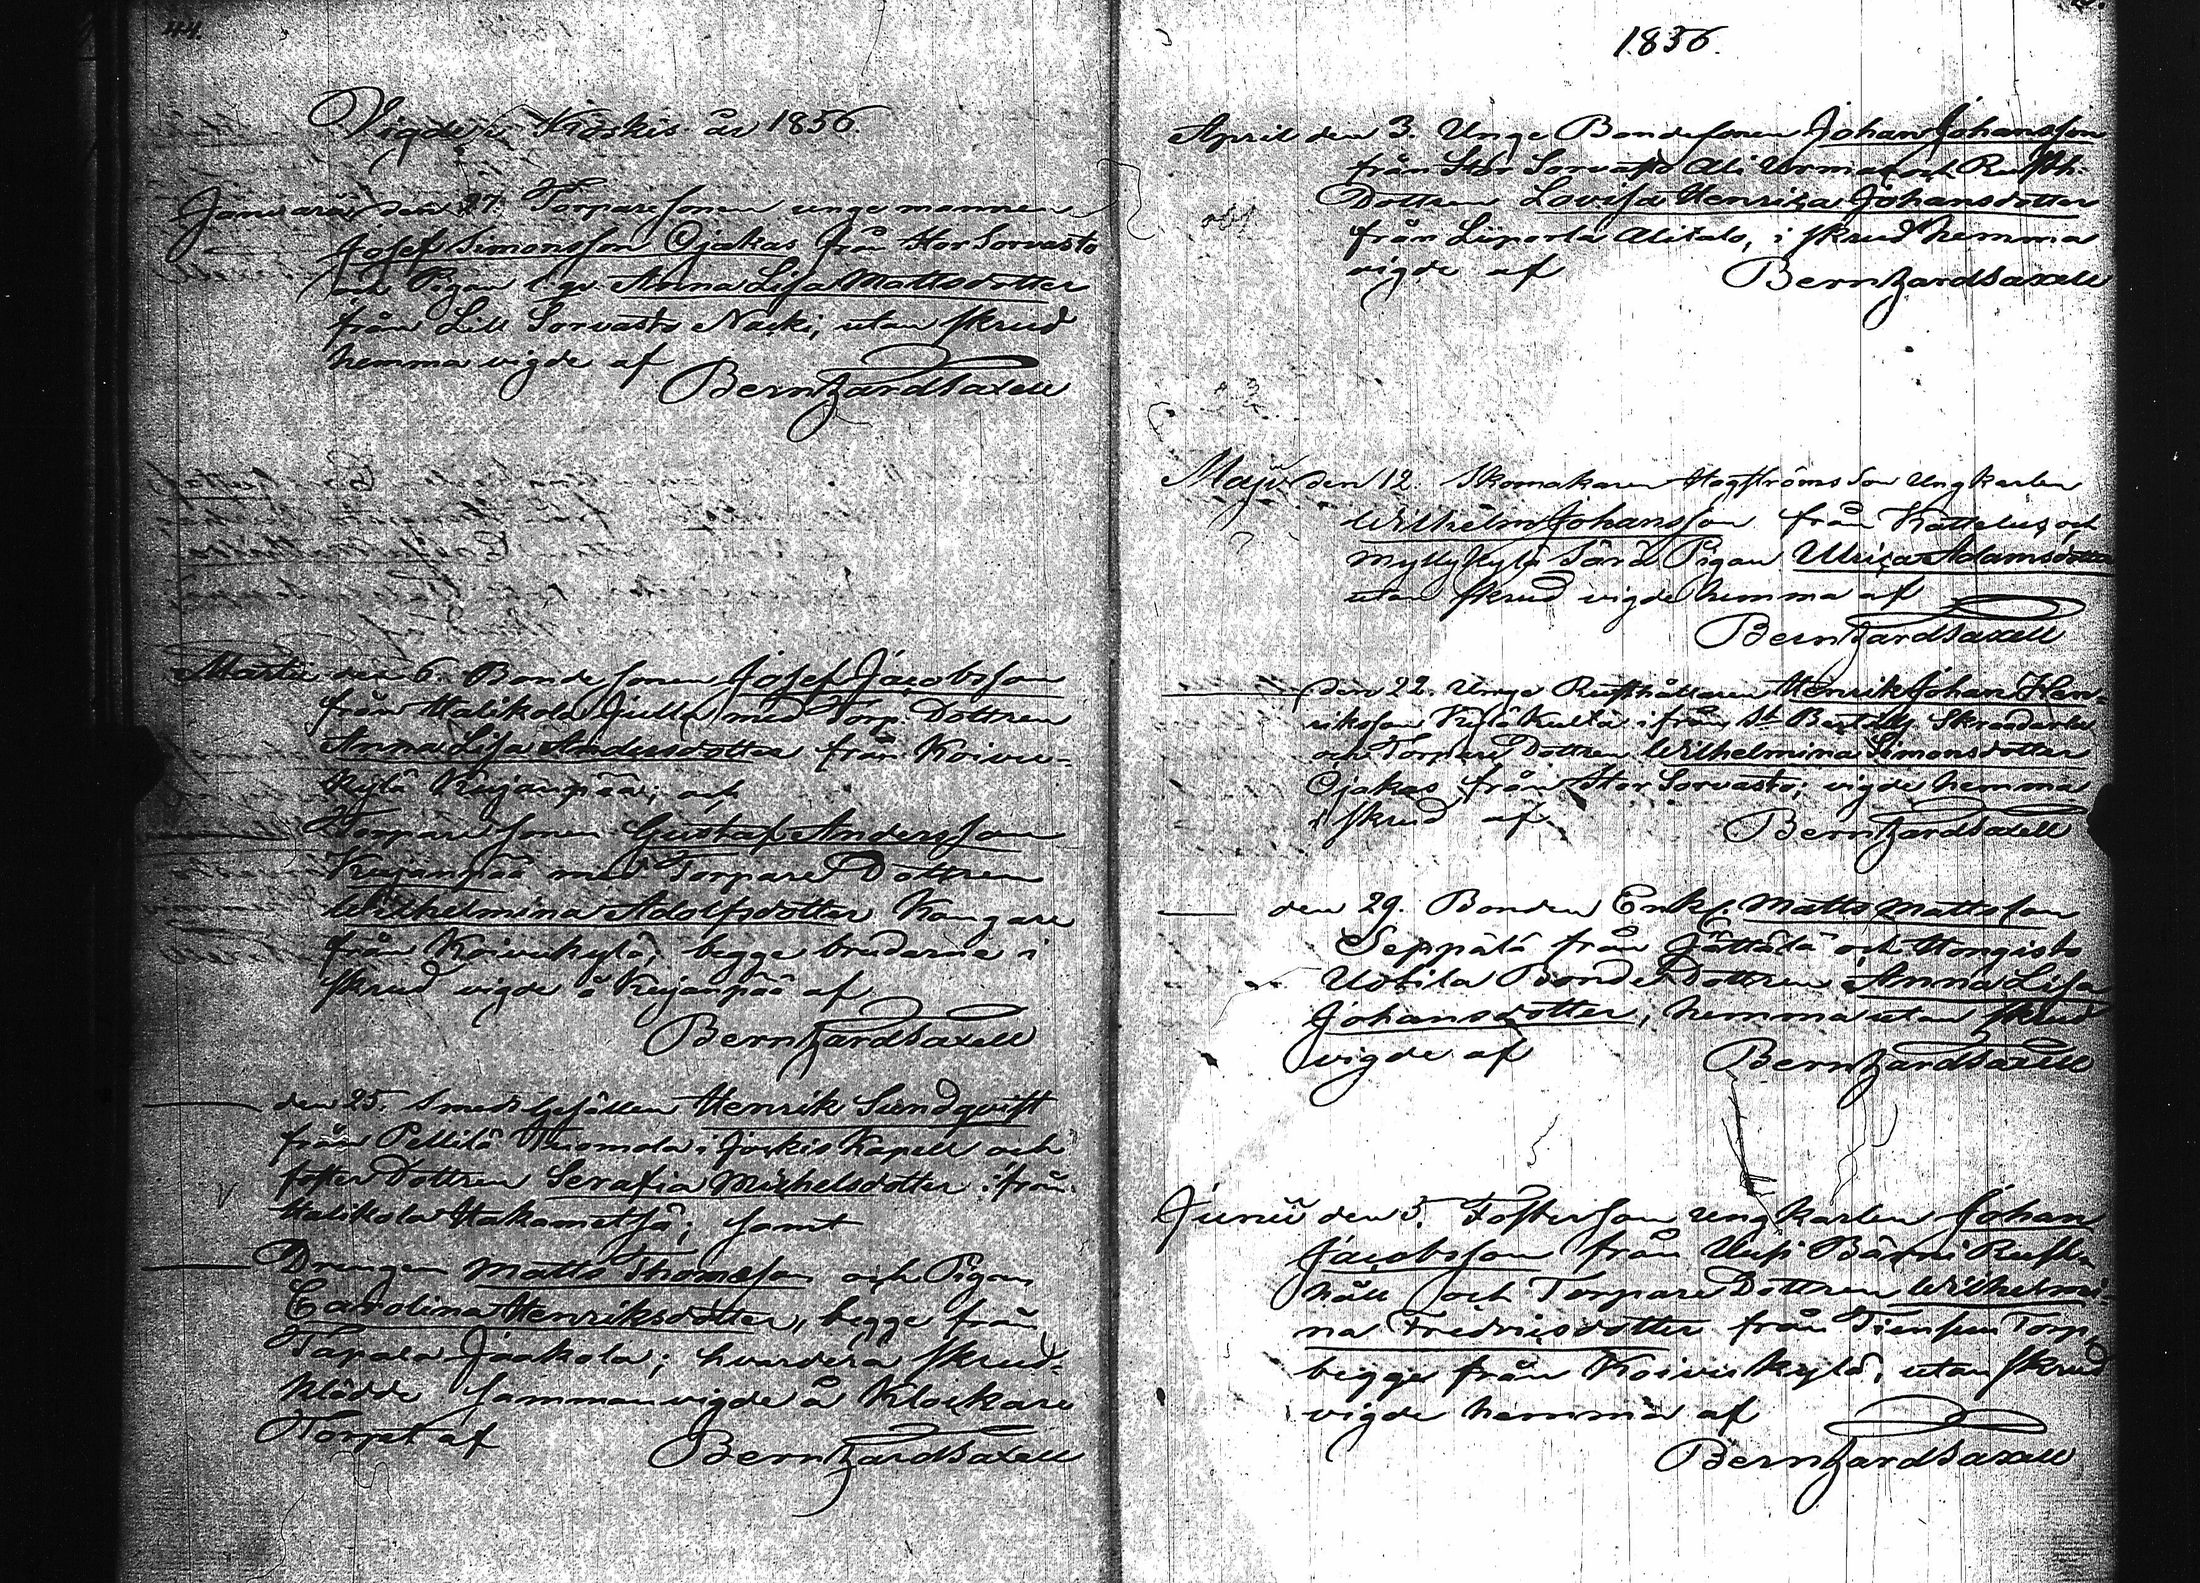 44.
Vigde i Koskis år 1856.
Januarii den 27. Torparesonen unge mannen
Josef Simonsson Ojakas från Stor Sorvasto
och Pigan Anna Lisa Mattsdotter
från Lill Sorvasto Nacki, utan skrud
hemma vigde af
Bernhard Saxell
Martii den 6. Bonde sonen Josef Jacobsson
från Halikola Julla med Torp. Dottren
Anna Lisa Andersdotter från Koivu-
kylä Kujanpää; och
Torpare sonen Gustaf Andersson
Kujanpää med Torpare Dottren
Wilhelmina Adolfsdotter Kangare
från Koivukylä, begge brudarne i
skrud vigde å Kujanpää af
Bernhard Saxell
den 25. Smeds Gesällen Henrik Sundqvist
från Pellilä Tuomola i Jockis Kapell och
foster Dottren Serafia Michelsdotter ifrån
Halikola Hakametsä; samt
Drengen Matts Thomasson och Pigan
Carolina Henriksdotter, begge från
Tapala Jaakola; hvardera skrud-
klädde sammanvigde å Klockare
Torpet af
Bernhard Saxell
1856.
April den 3. Unge Bondesonen Johan Johansson
från Stor Sorvasto Ali Uorma och Rusth.
Dottren Lovisa Henrica Johansdotter
från Liporla Alitalo, i skrud hemma
vigde af
Bernhard Saxell
Maji den 12. Skomakaren Hagströms Son Ungkarlen
Wilhelm Johansson från Kattelus och
Myllykylä Särä Pigan Ulrica Adamsdotter
utan skrud vigde hemma af
Bernhard Saxell
den 22. Unge Rusthållaren Henrik Johan Hen-
riksson Kylä Kulta i från St Bertäly Skräddare
och Torpare Dottren Wilhelmina Simonsdotter
Ojakas från Stor Sorvasto; vigde hemma
i skrud af
Bernhard Saxell
den 29. Bonden Enkl. Matts Mattsson
Seppälä från Jättälä och Hongisto
Uotila Bonde Dottren Anna Lisa
Johansdotter, hemma utan skrud
vigde af
Bernhard Saxell
Junii den 5. Fosterson ungkarlen Johan
Jacobsson från Uusi Bärni Rust-
håll och Torpare Dottren Wilhelmi-
na Fredricsdotter från Tiensuu Torp,
begge från Koivukylä, utan skrud
vigde hemma af
Bernhard Saxell